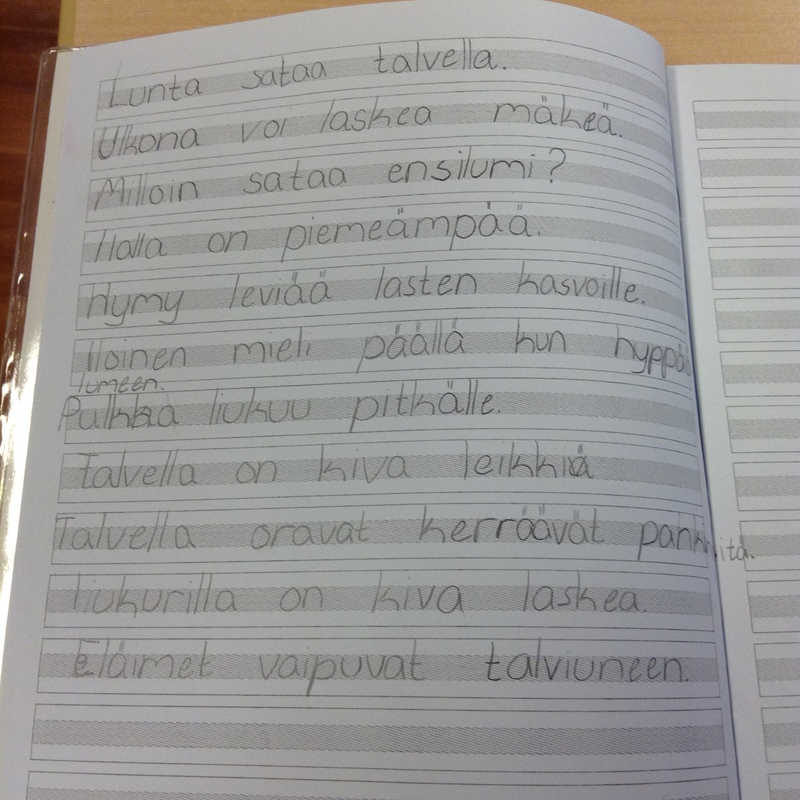 Lunta sataa talvella.
Ulkona voi laskea mäkeä.
Milloin sataa ensilumi?
Halla on piemeämpää.
Hymy leviää lasten kasvoille.
Iloinen mieli päällä kun hyppää
lumeen.
Pulkka liukuu pitkälle.
Talvella on kiva leikkiä
Talvella oravat kerräävät
liukurilla on kiva laskea.
Eläimet vaipuvat talviuneen.